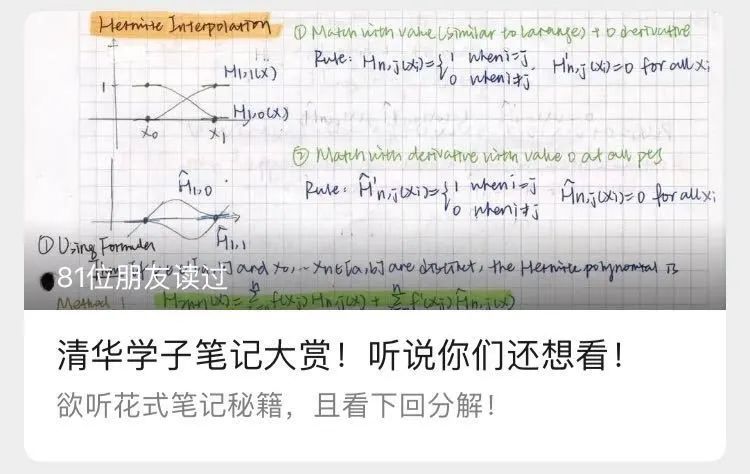 Hermite Interpolation
① Match with value (similar to larange) + 0 derivative
Rule: Hn,j(xi)={1 when i=j, 0 when i≠j. H'n,j(xi)=0 for all xi
1
H1,1(x)
H1,0(x)
x0 x1
② Match with derivative with value 0 at all pts
Rule: Ĥ'n,j(xi)={1 when i=j, 0 when i≠j Ĥn,j(xi)=0 for all xi
Ĥ1,0
Ĥ1,1
① Using Formular
and x0,...xn∈[a,b] are distinct, the Hermite polynomial is
81位朋友读过
Method 1
H2n+1(x)=Σf(xj)Hn,j(x)+Σf'(xj)Ĥn,j(x)
清华学子笔记大赏！听说你们还想看！
欲听花式笔记秘籍，且看下回分解！